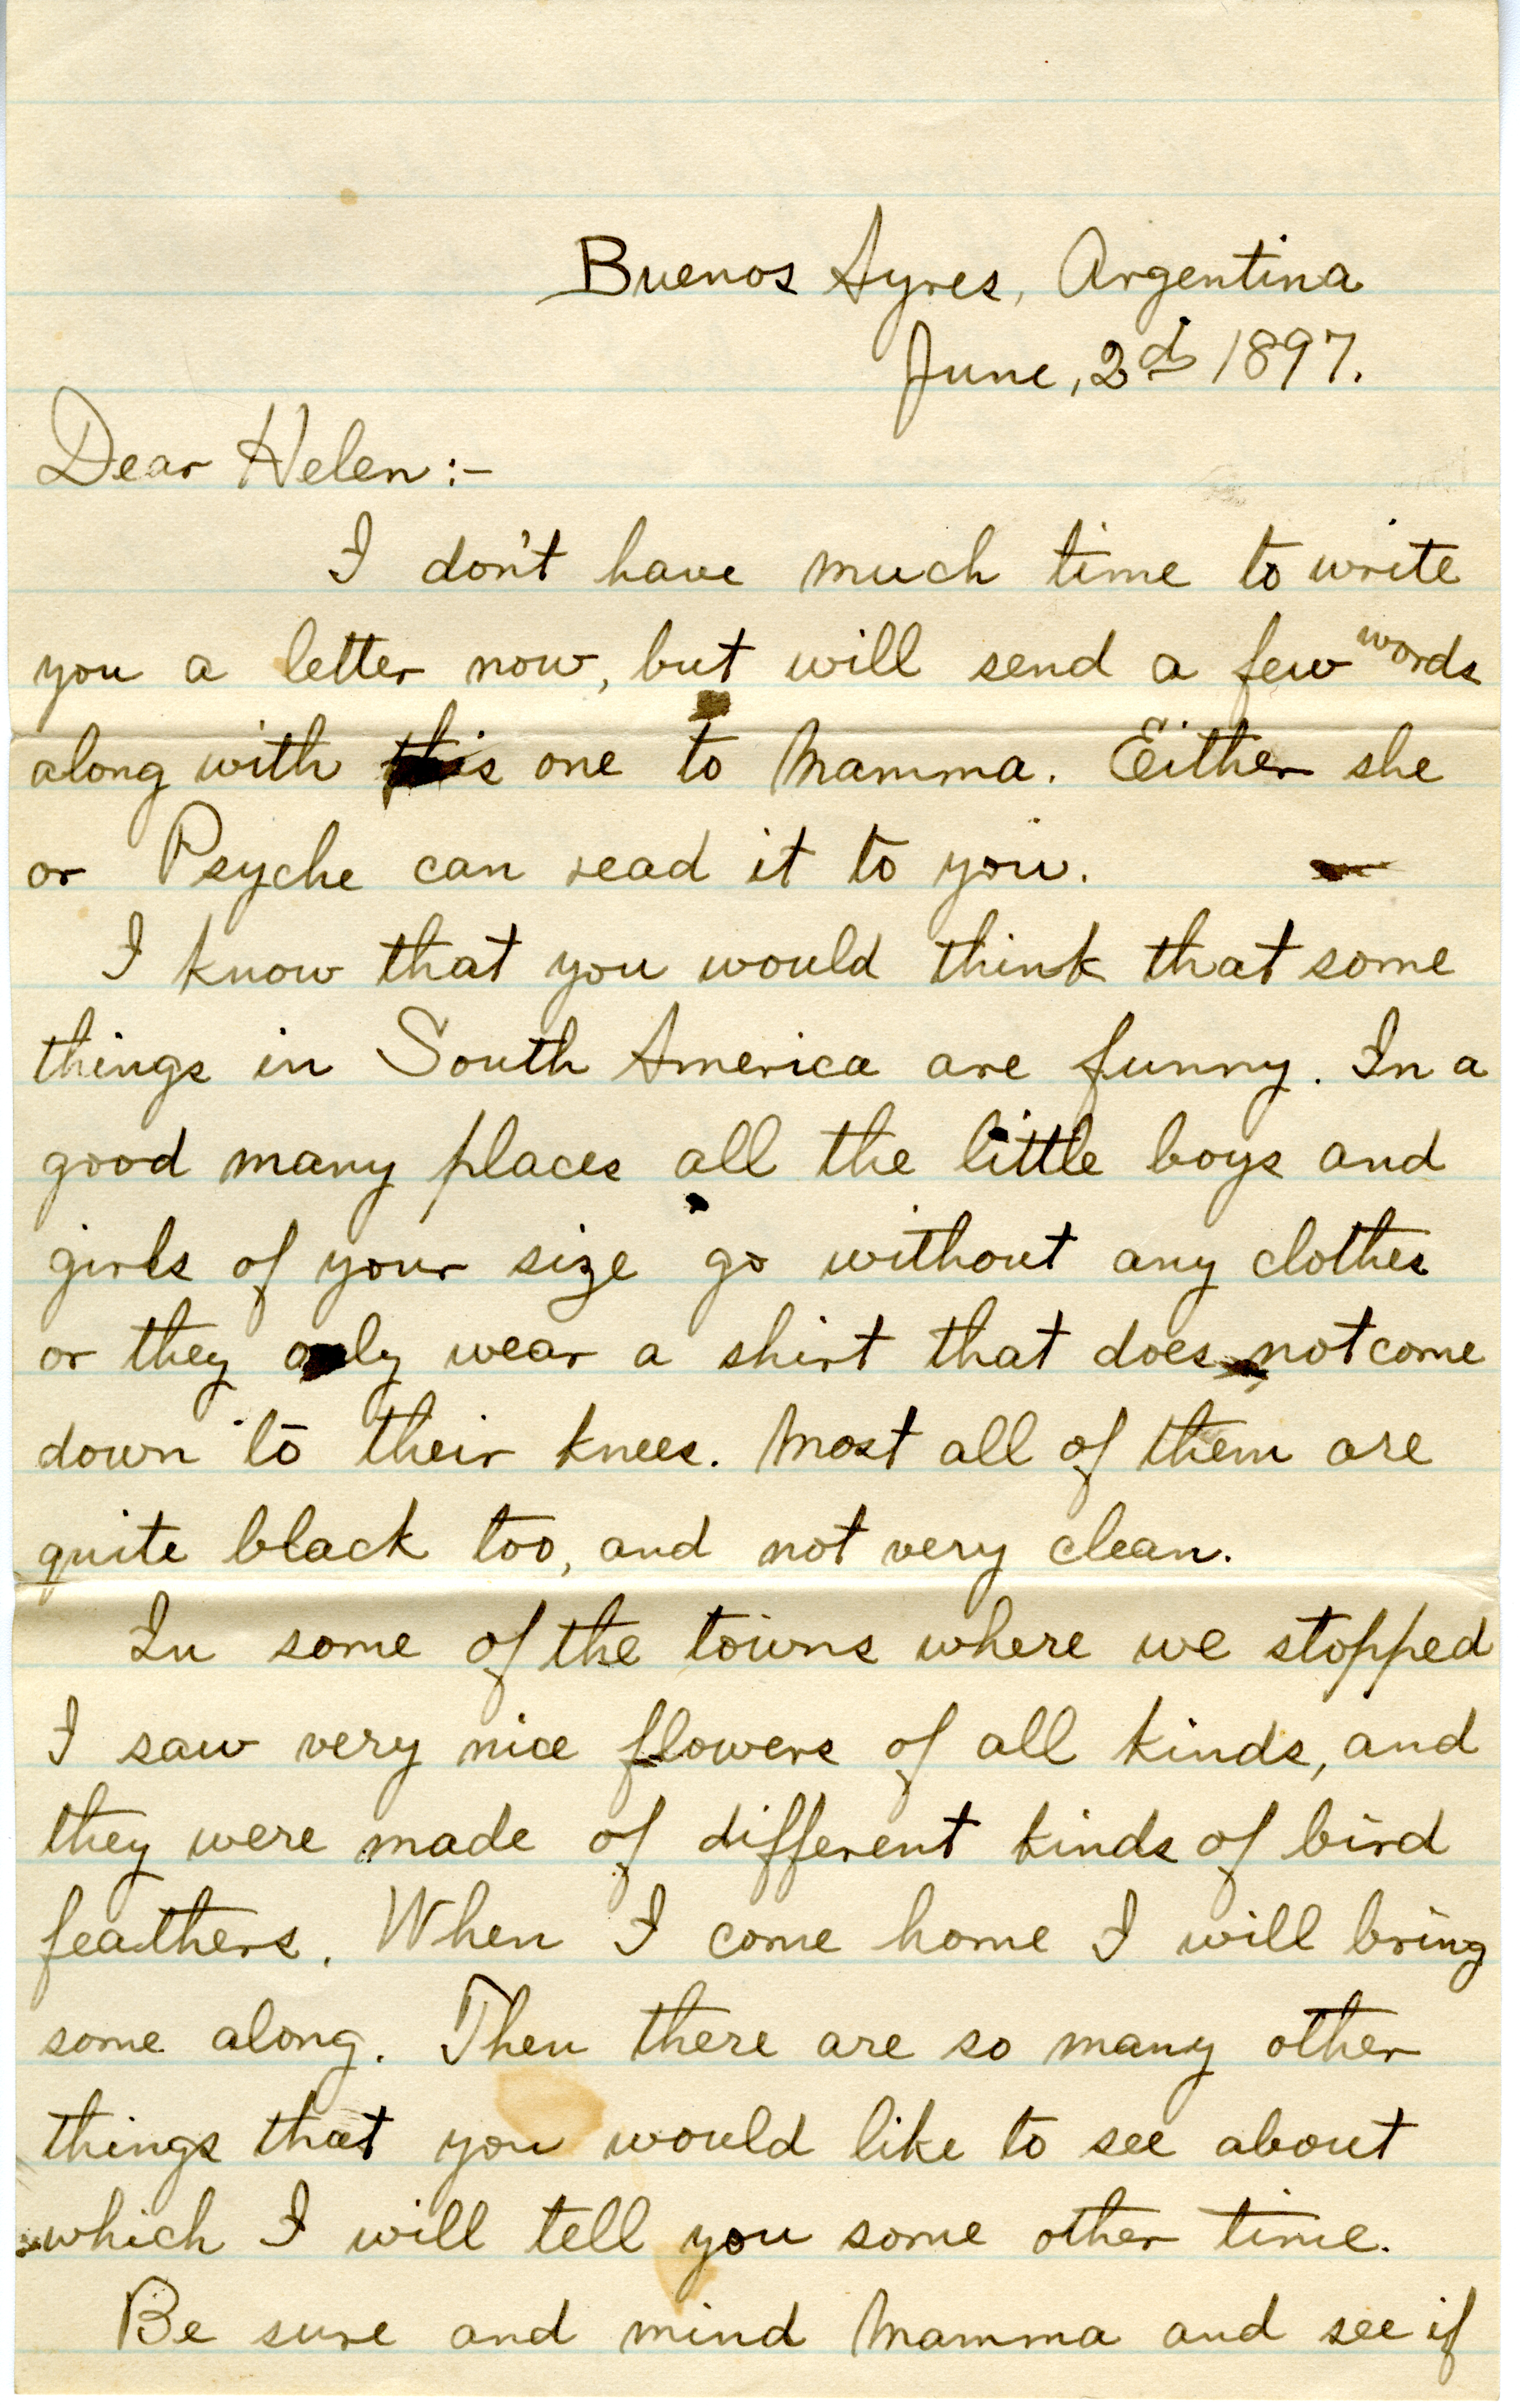 Buenos Ayres, Argentina
June, 2d 1897.
Dear Helen:-
I don't have much time to write
you a letter now, but will send a few words
along with this one to Mamma. Either she
or Psyche can read it to you.
I know that you would think that some
things in South America are funny. In a
good many places all the little boys and
girls of your size go without any clothes
or they only wear a shirt that does not come
down to their knees. Most all of them are
quite black too, and not very clean.
In some of the towns where we stopped
I saw very nice flowers of all kinds, and
they were made of different kinds of bird
feathers. When I come home I will bring
some along. Then there are so many other
things that you would like to see about
which I will tell you some other time.
Be sure and mind Mamma and see if